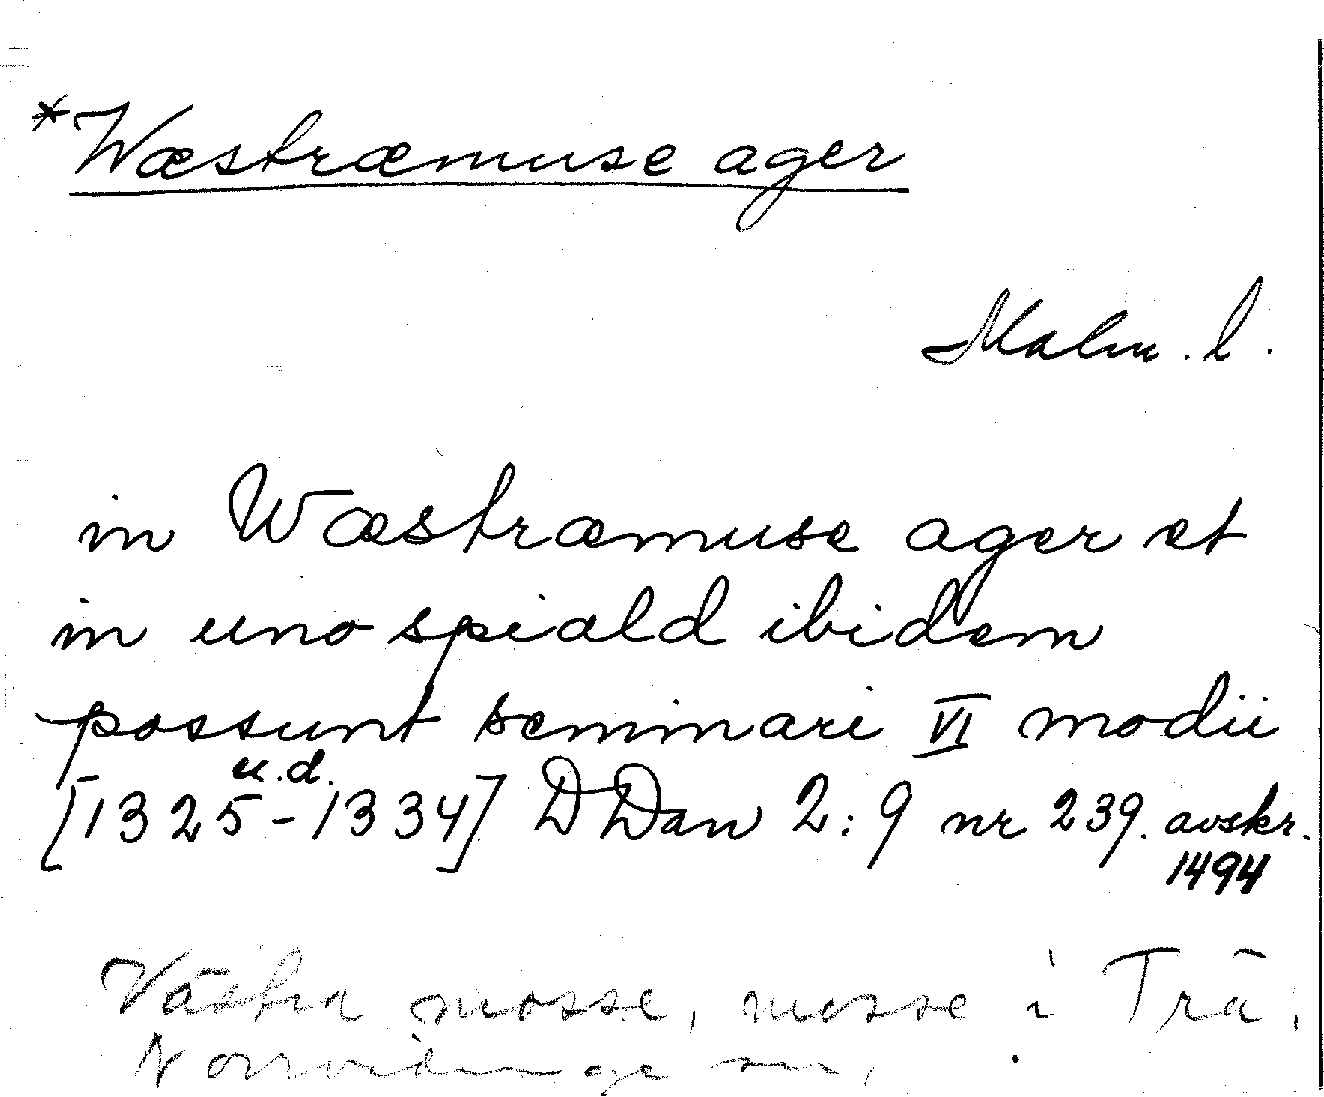 *Wæstræmuse ager
Malm. l.
in Wæstræmuse ager et
in uno spiald ibidem
possunt seminari VI modii
u.d.
[1325-1334] DDan 2:9 nr 239. avskr.
1494
Västra mosse, mosse i Trä,
Norrvidinge sn,